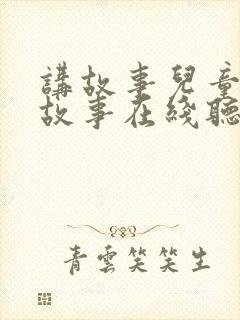 講故事兒童
故事在綫聽
青雲笑笑生